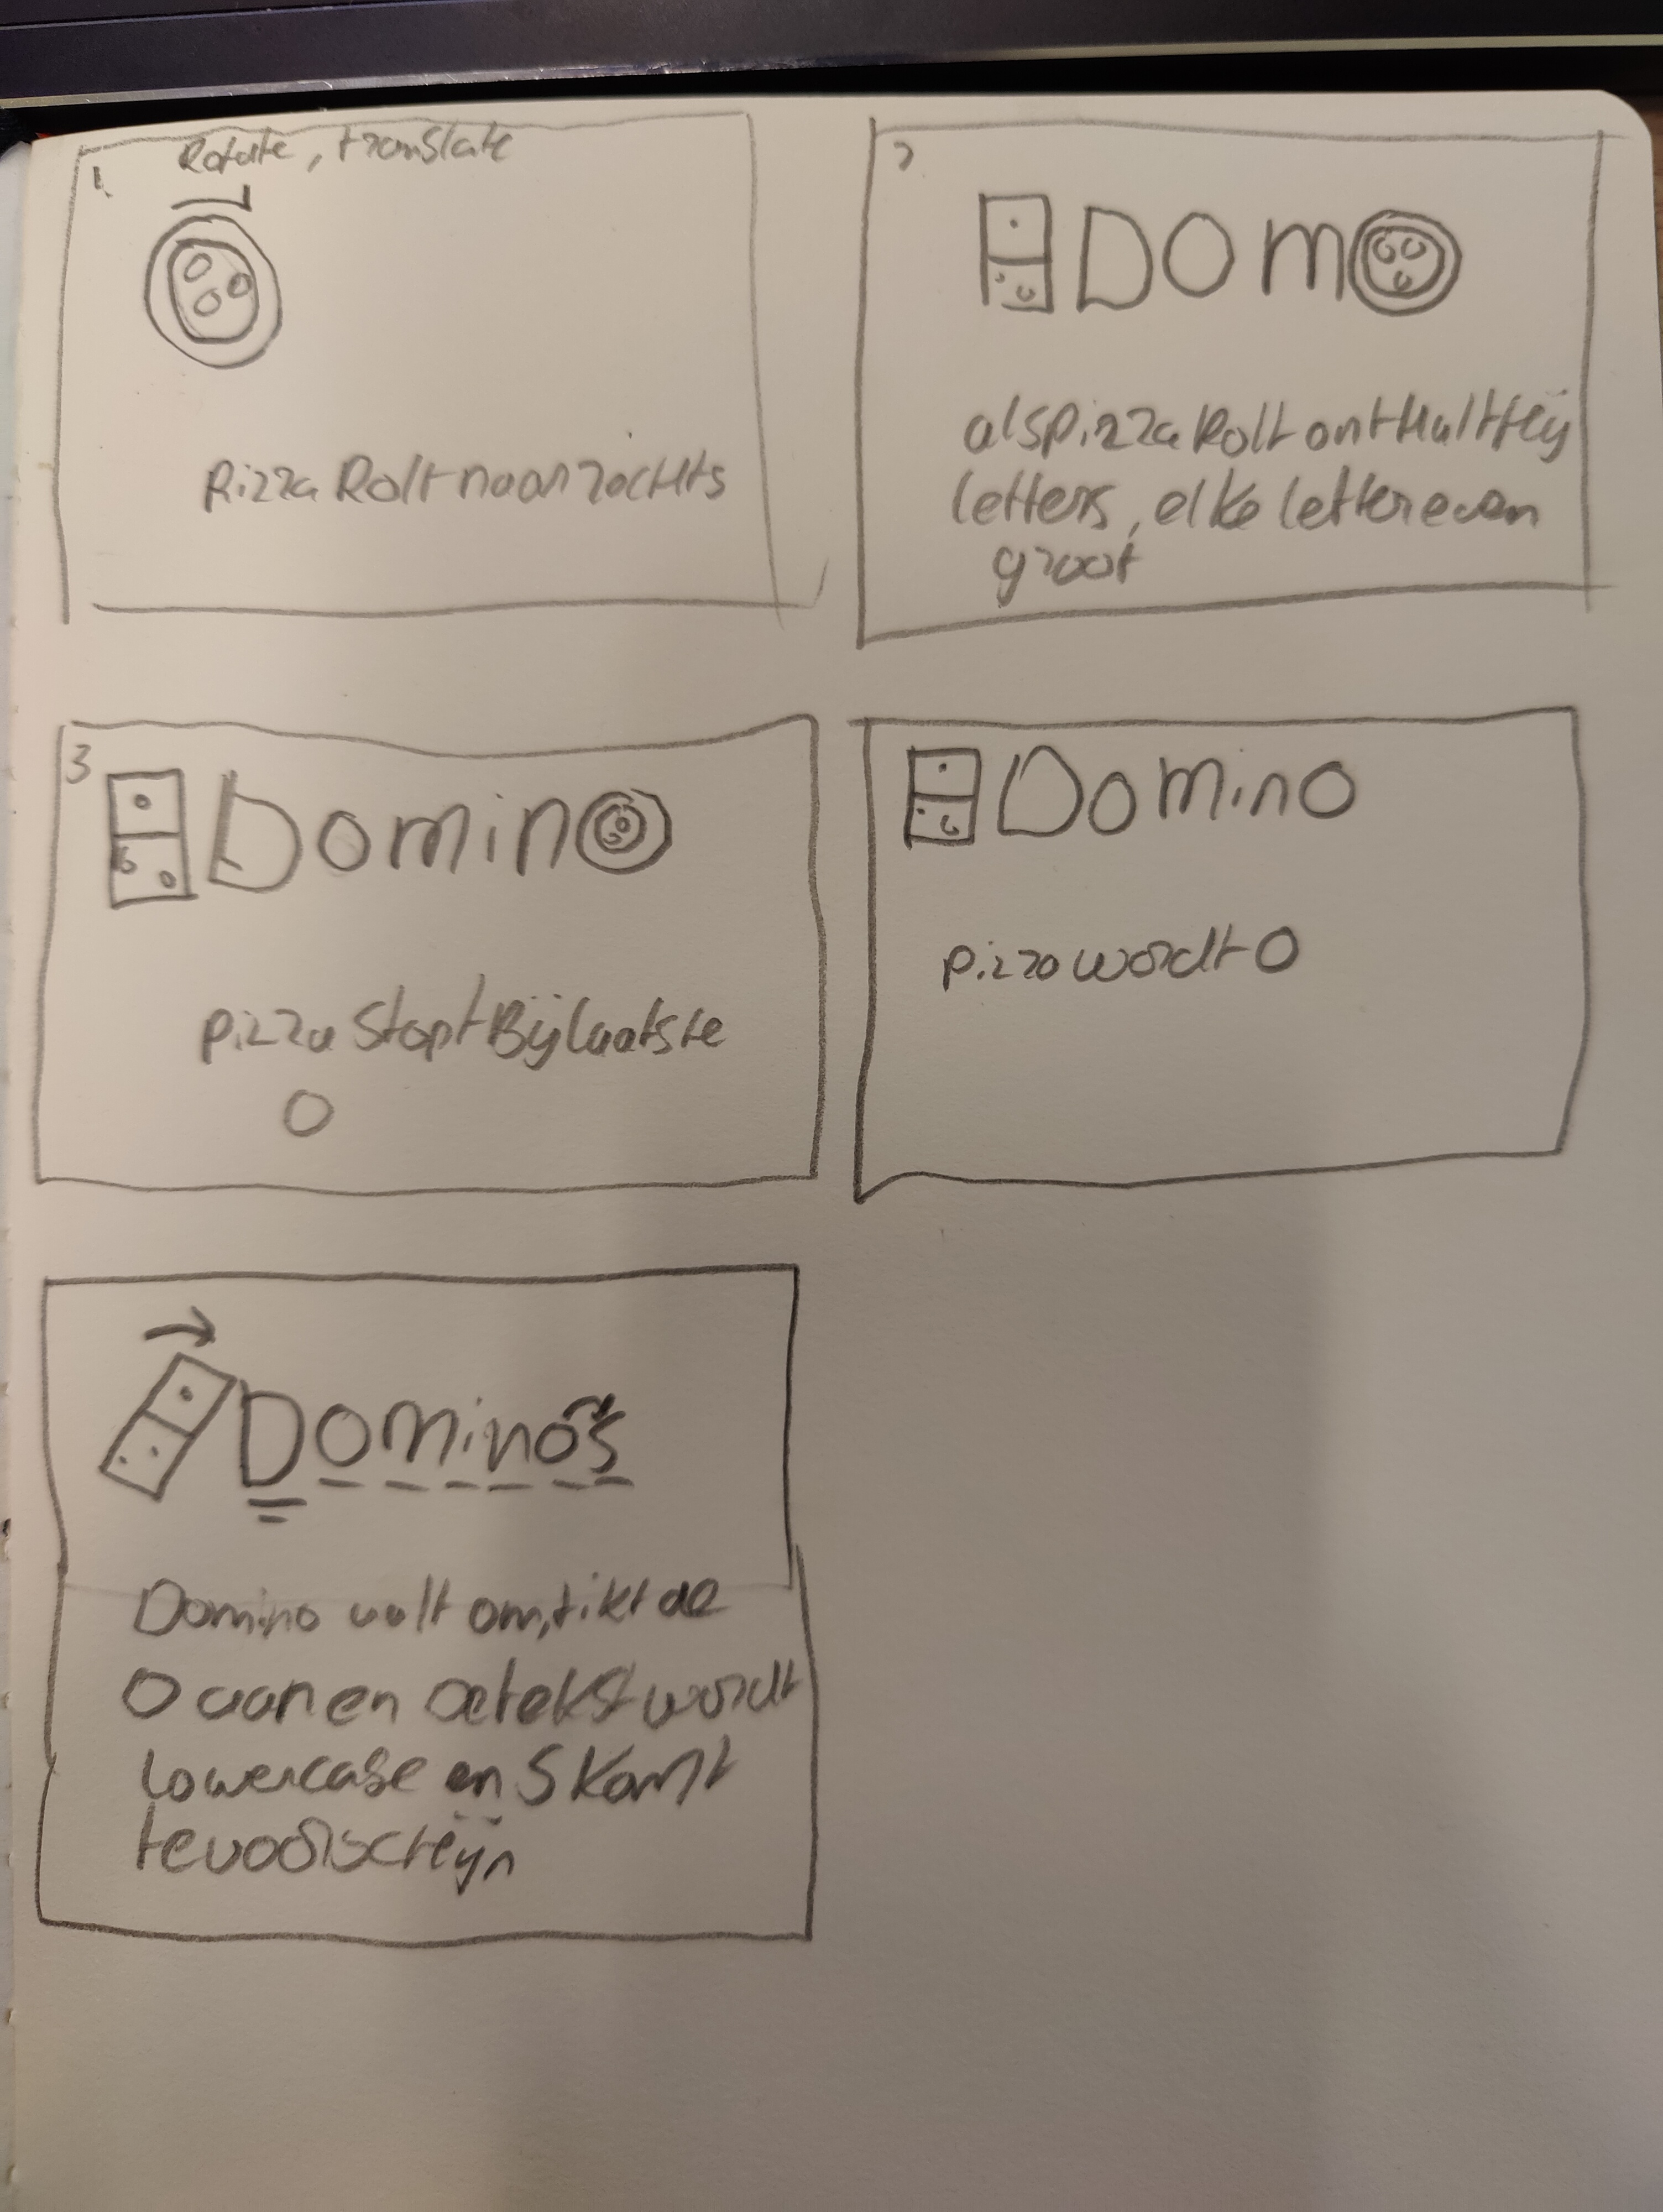 1.
Rotate, translate
Pizza Rolt naar rechts
2
DOM
als pizza Rolt ontHult Hij
letters, elke letter even
groot
3
Domin
pizza stopt Bij laatste
O
Domino
pizza wordt O
Domino's
Domino valt om, tikt de
O aan en de tekst wordt
lowercase en S komt
tevoorscHijn